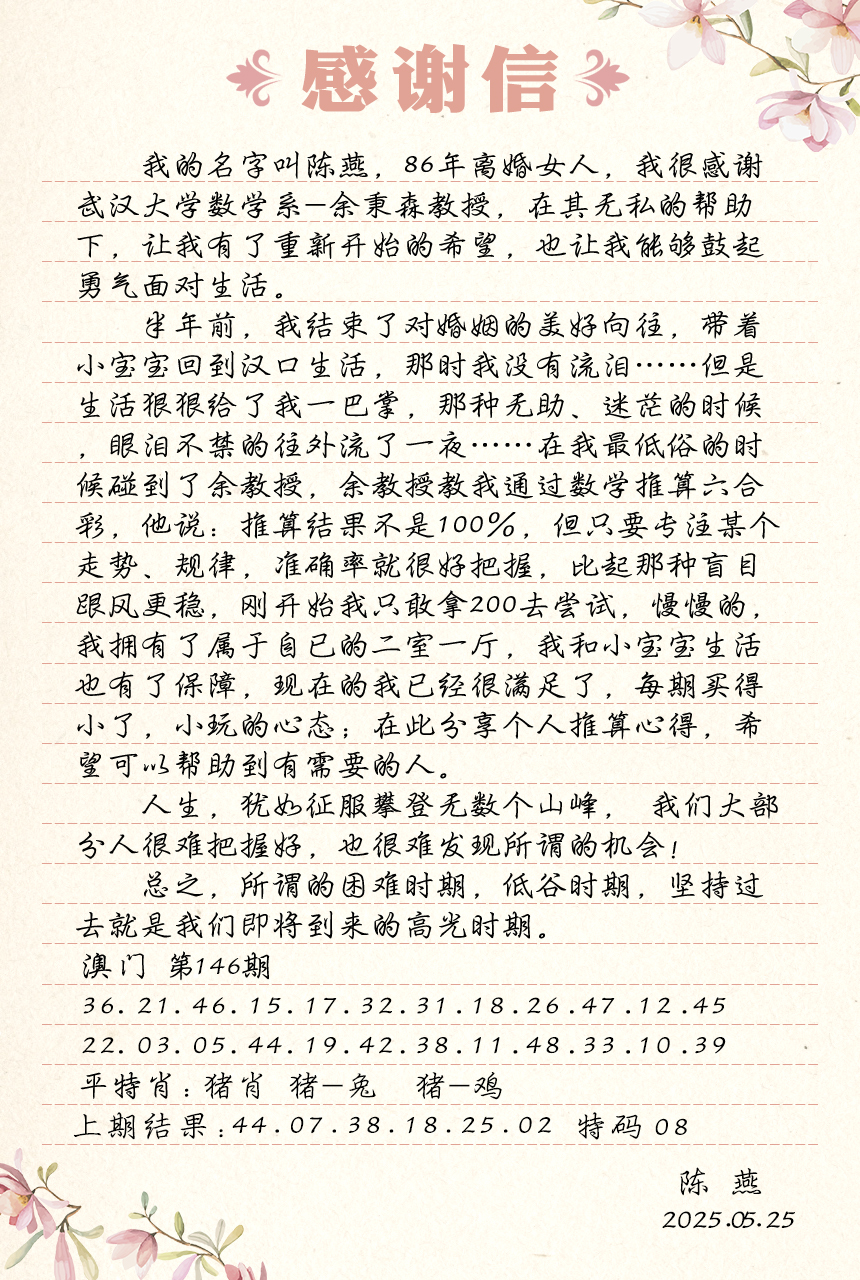 感谢信
我的名字叫陈燕，86年离婚女人，我很感谢
武汉大学数学系—余秉森教授，在其无私的帮助
下，让我有了重新开始的希望，也让我能够鼓起
勇气面对生活。
半年前，我结束了对婚姻的美好向往，带着
小宝宝回到汉口生活，那时我没有流泪……但是
生活狠狠给了我一巴掌，那种无助、迷茫的时候
，眼泪不禁的往外流了一夜……在我最低俗的时
候碰到了余教授，余教授教我通过数学推算六合
彩，他说：推算结果不是100%，但只要专注某个
走势、规律，准确率就很好把握，比起那种盲目
跟风更稳，刚开始我只敢拿200去尝试，慢慢的，
我拥有了属于自已的二室一厅，我和小宝宝生活
也有了保障，现在的我已经很满足了，每期买得
小了，小玩的心态；在此分享个人推算心得，希
望可以帮助到有需要的人。
人生，犹如征服攀登无数个山峰， 我们大部
分人很难把握好，也很难发现所谓的机会！
总之，所谓的困难时期，低谷时期，坚持过
去就是我们即将到来的高光时期。
澳门 第146期
36.21.46.15.17.32.31.18.26.47.12.45
22.03.05.44.19.42.38.11.48.33.10.39
平特肖：猪肖 猪—兔 猪—鸡
上期结果：44.07.38.18.25.02 特码 08
陈 燕
2025.05.25